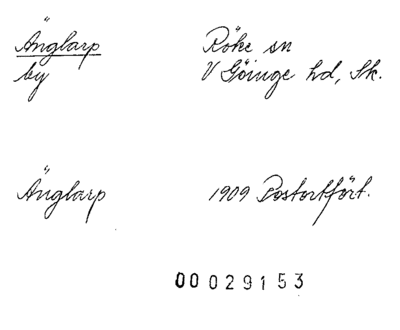 Änglarp Röke sn
by V Göinge hd, Sk.
Änglarp 1909 Postortfört.
00029153